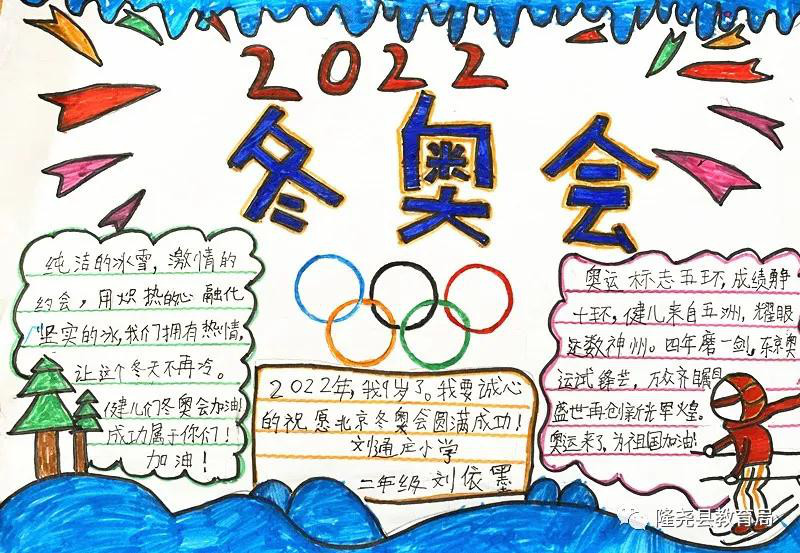 2022
冬奥会
纯洁的冰雪,激情的
约会,用炽热的心融化
坚实的冰,我们拥有热情,
让这个冬天不再冷。
健儿们冬奥会加油!
成功属于你们!
加油!
2022年,我9岁了。我要诚心
的祝愿北京冬奥会圆满成功!
刘通庄小学
二年级 刘依墨
奥运标志五环,成绩静
十环,健儿来自五洲,耀眼
还数神州。四年磨一剑,东京奥
运试锋芒,万众齐瞩目
盛世再创新光辉煌。
奥运来了,为祖国加油!
隆尧县教育局